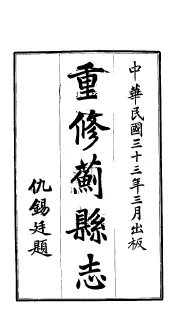 中華民國三十三年三月出板
重修薊縣志
仇錫廷題